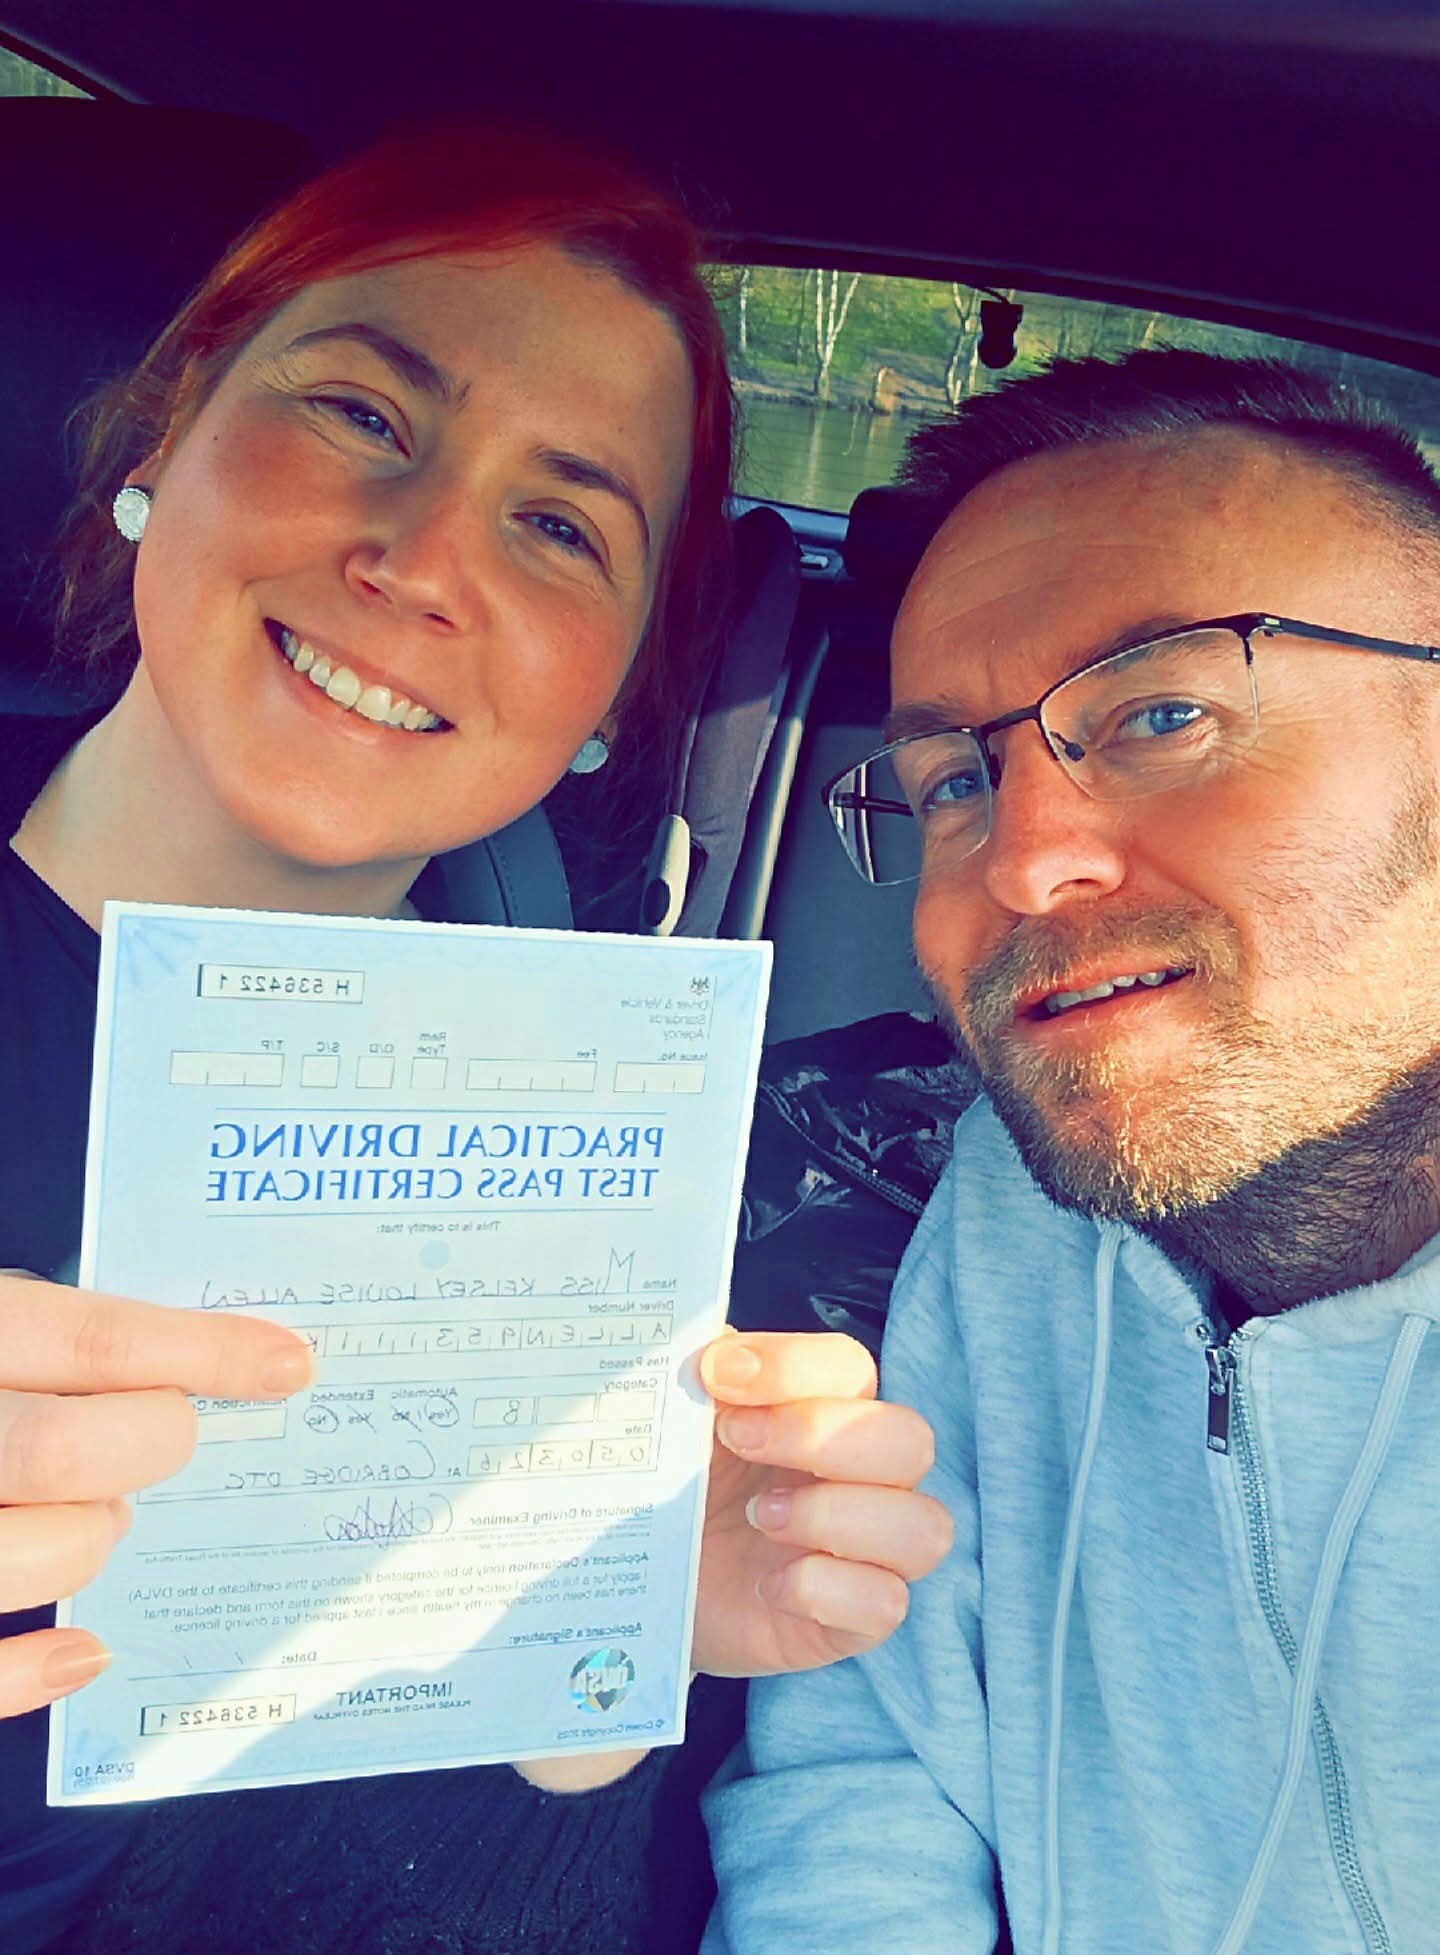 Driver & Vehicle
Standards
Agency
H 536422 1
Issue No.
Fee
Rem Type
D/D
S/C
T/P
PRACTICAL DRIVING
TEST PASS CERTIFICATE
This is to certify that:
Name MISS KELSEY LOUISE ALLEN
Driver Number
ALLEN953111K
Has Passed
Category Automatic Extended
B Yes / No Yes / No
Date
050326 At COBRIDGE DTC
Signature of Driving Examiner
Applicant's Declaration (only to be completed if sending this certificate to the DVLA)
I apply for a full driving licence for the category shown on this form and declare that
there has been no change in my health since I last applied for a driving licence.
Applicant's Signature:
Date: / /
IMPORTANT
PLEASE READ THE NOTES OVERLEAF
H 536422 1
© Crown Copyright 2025
DVSA 10